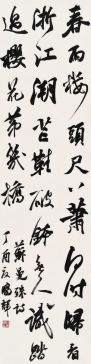 春雨楼头尺八箫何时归看
浙江潮芒鞋破钵无人识踏
过樱花第几桥 苏曼殊诗
丁酉友鹏辉